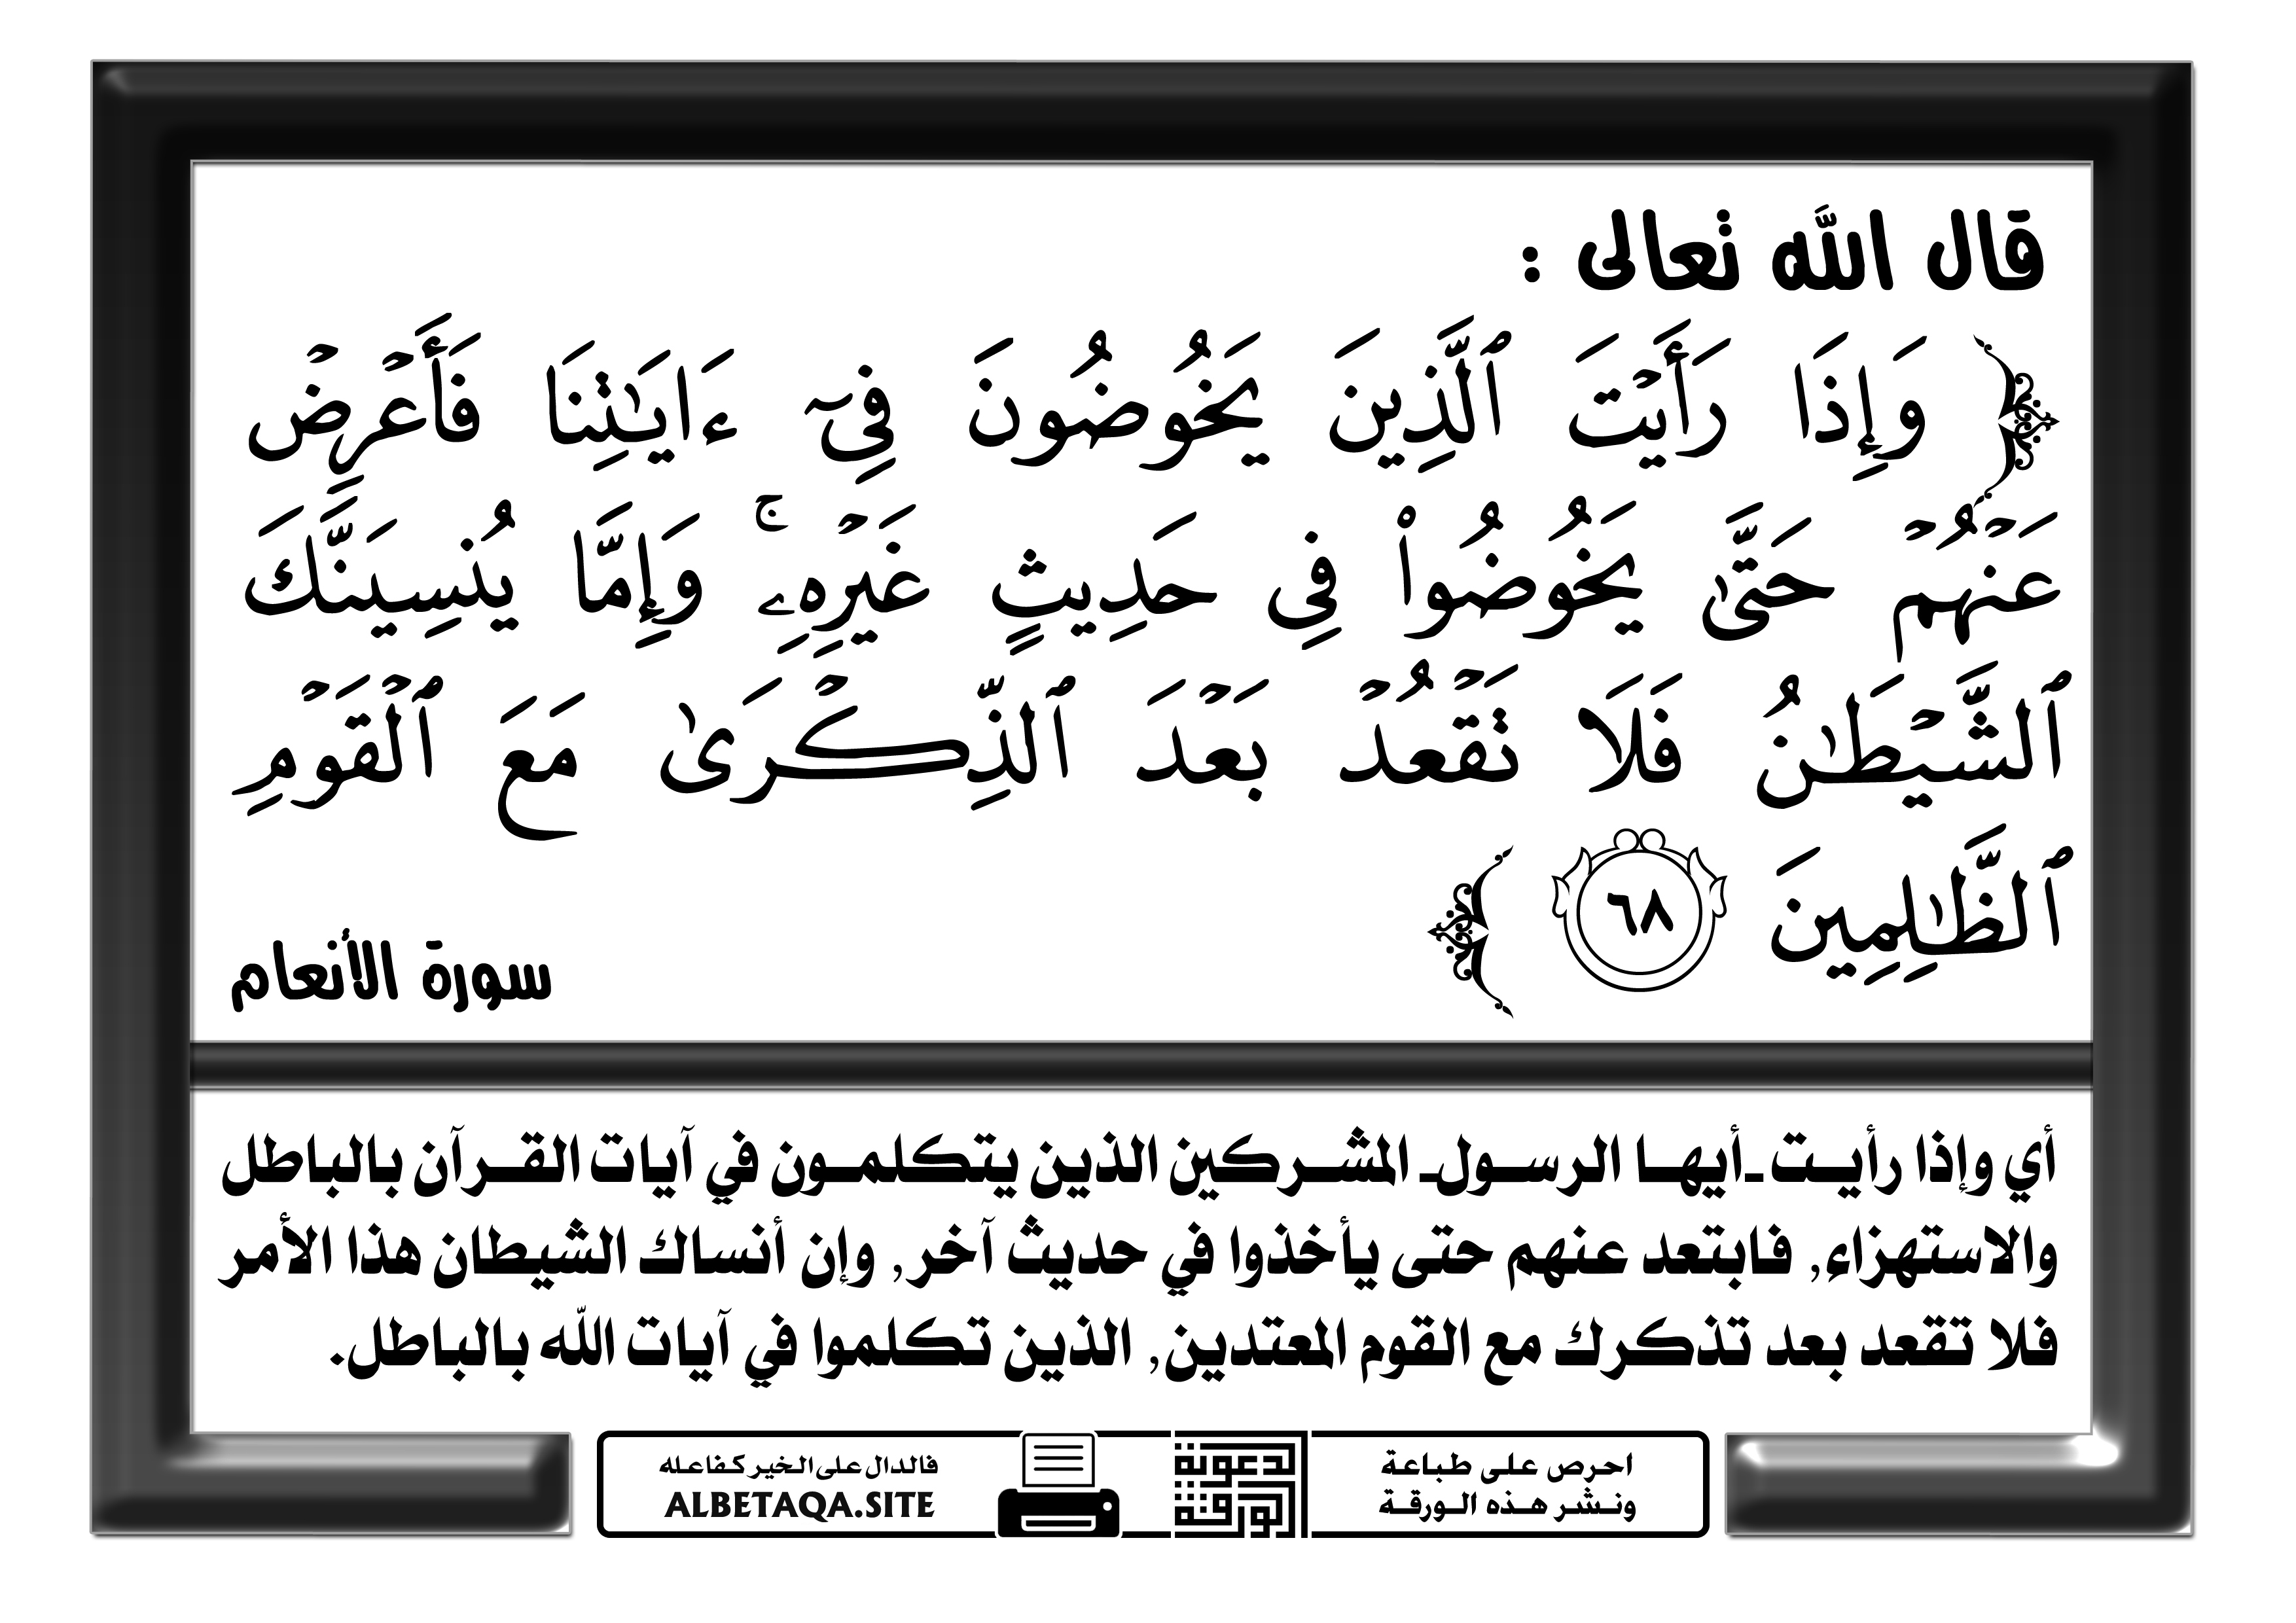 قال الله تعالى :
﴿ وَإِذَا رَأَيْتَ ٱلَّذِينَ يَخُوضُونَ فِىٓ ءَايَـٰتِنَا فَأَعْرِضْ
عَنْهُمْ حَتَّىٰ يَخُوضُوا۟ فِى حَدِيثٍ غَيْرِهِۦ ۚ وَإِمَّا يُنسِيَنَّكَ
ٱلشَّيْطَـٰنُ فَلَا تَقْعُدْ بَعْدَ ٱلذِّكْرَىٰ مَعَ ٱلْقَوْمِ
ٱلظَّـٰلِمِينَ ٦٨ ﴾
سورة الأنعام
أي وإذا رأيت -أيها الرسول- المشركين الذين يتكلمون في آيات القرآن بالباطل
والاستهزاء, فابتعد عنهم حتى يأخذوا في حديث آخر, وإن أنساك الشيطان هذا الأمر
فلا تقعد بعد تذكرك مع القوم المعتدين, الذين تكلموا في آيات الله بالباطل.
احرص على طباعة
ونشر هذه الورقة
الدعوية
الورقة
فالدال على الخير كفاعله
ALBETAQA.SITE